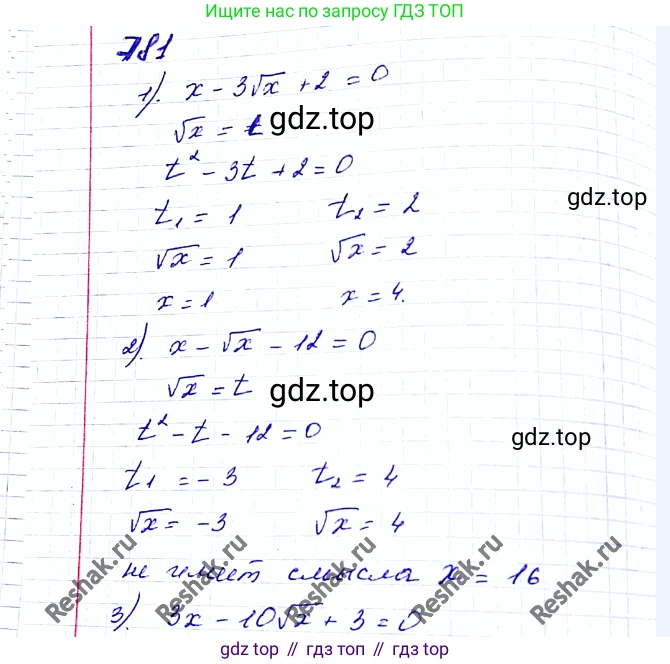 Ищите нас по запросу ГДЗ ТОП
781
1). x - 3√x + 2 = 0
√x = t
gdz.top
t² - 3t + 2 = 0
gdz.top
t₁ = 1 t₂ = 2
√x = 1 √x = 2
x = 1 x = 4.
2). x - √x - 12 = 0
√x = t
gdz.top
t² - t - 12 = 0
gdz.top
t₁ = -3 t₂ = 4
√x = -3 √x = 4
не имеет смысла x = 16
Reshak.ru
Reshak.ru
Reshak.ru
Reshak.ru
3). 3x - 10√x + 3 = 0
gdz.top // gdz.top // gdz.top